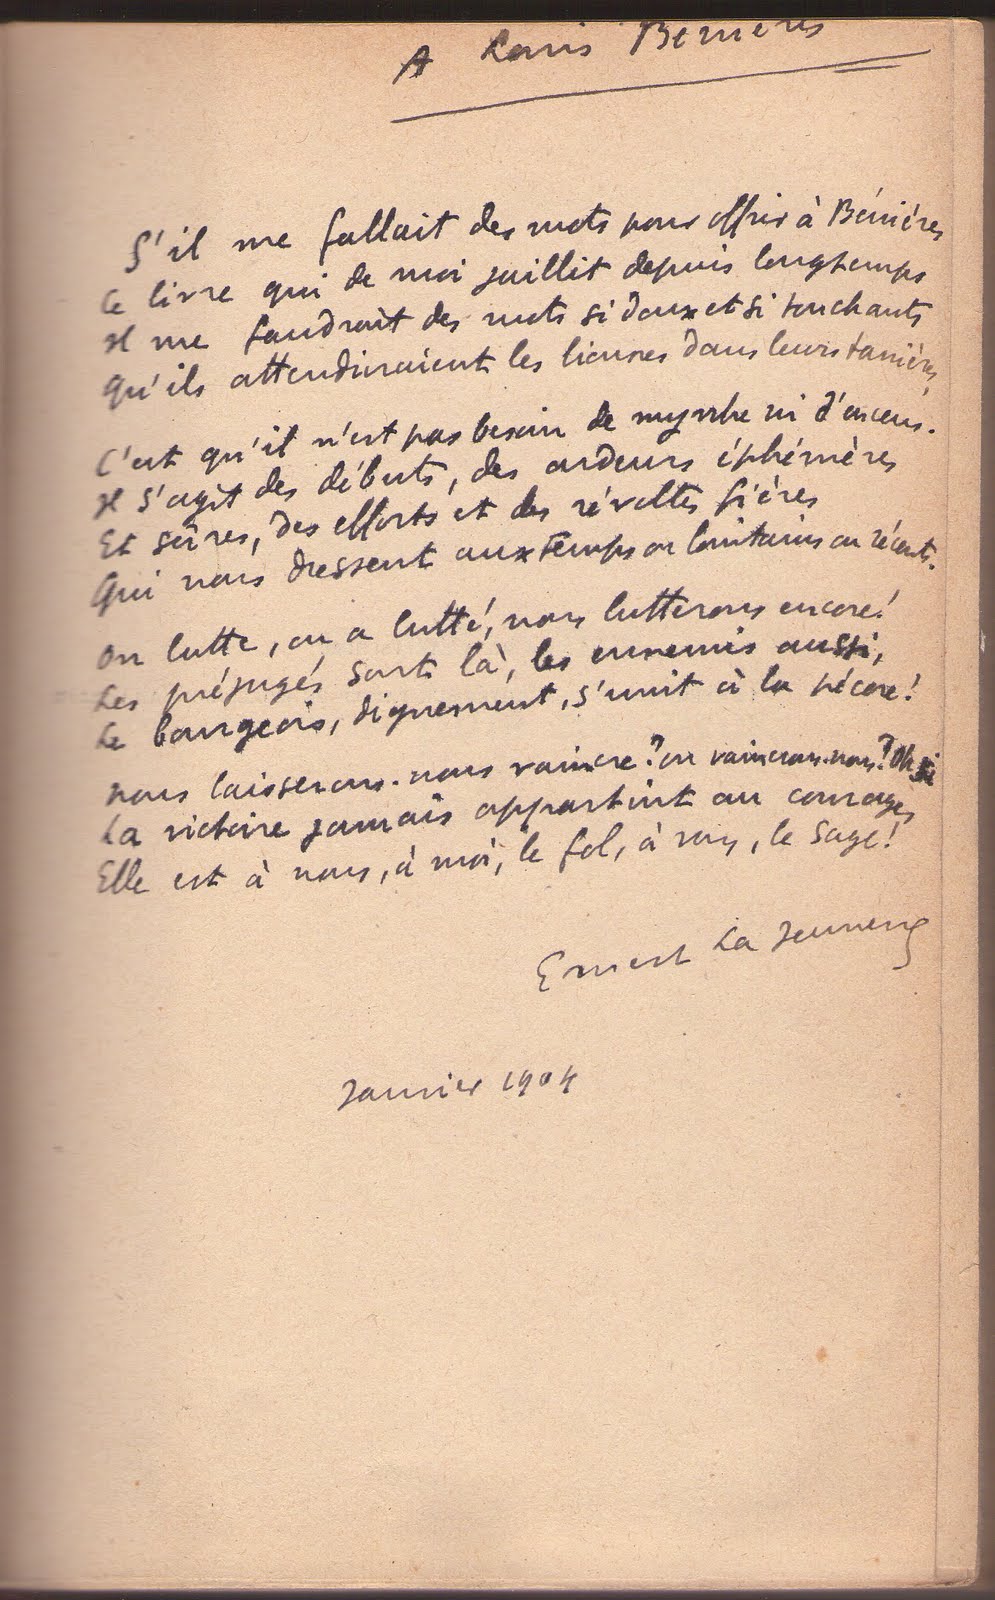 A Louis Bénières
S'il me fallait des mots pour offrir à Bénières
Ce livre qui de moi jaillit depuis longtemps
Il me faudrait des mots si doux et si touchants
Qu'ils attendriraient les lionnes dans leurs tanières,
C'est qu'il n'est pas besoin de myrrhe ni d'encens.
Il s'agit des débuts, des ardeurs éphémères
Et sûres, des efforts et des révoltes fières
Qui nous dressent aux temps ou lointains ou récents.
On lutte, on a lutté, nous lutterons encore!
Les préjugés sont là, les ennemis aussi,
Le bourgeois, dignement, s'unit à la pécore!
Nous laisserons-nous vaincre? ou vaincrons-nous? Oh si
La victoire jamais appartint au courage,
Elle est à nous, à moi, le fol, à vous, le sage!
Ernest La Jeunesse
Janvier 1904